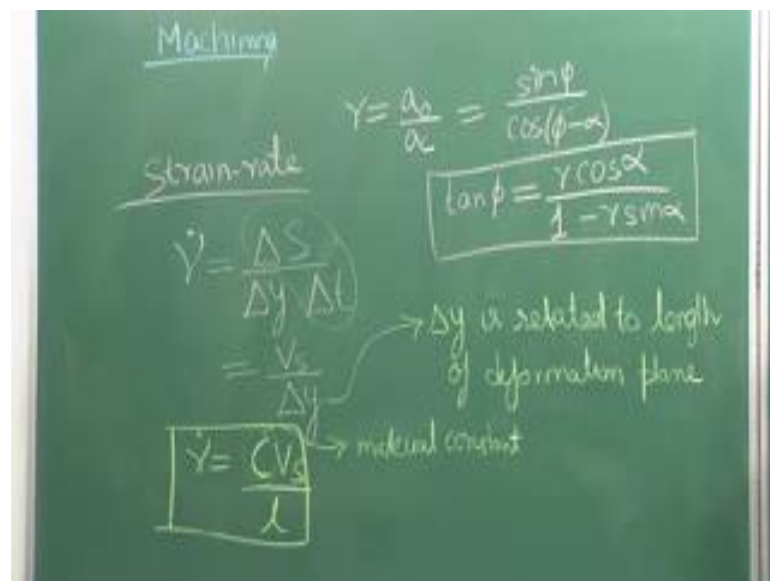 Machining
r = a₀/a_c = sinϕ/cos(ϕ-α)
tanϕ = r cosα/1 - r sinα
Strain-rate
γ̇ = ΔS/Δy Δt
= Vs/Δy
Δy is related to length
of deformation plane
γ̇ = CVs/l
material constant